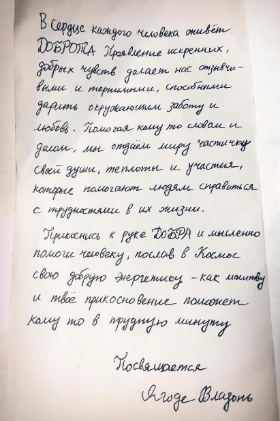 В Сердце каждого человека живёт
ДОБРОТА Проявление искренних,
добрых чувств делает нас отзывчи-
выми и терпимыми, способными
дарить окружающим заботу и
любовь. Помогая кому то словом и
делом, мы отдаём миру частичку
своей души, теплоты и участия,
которые помогают людям справиться
с трудностями в их жизни.
Прикоснись к руке ДОБРА и мысленно
помоги человеку, послав в Космос
свою добрую энергетику – как молитву
и твоё прикосновение поможет
кому то в трудную минуту
Посвящается
Ягоде Владонь